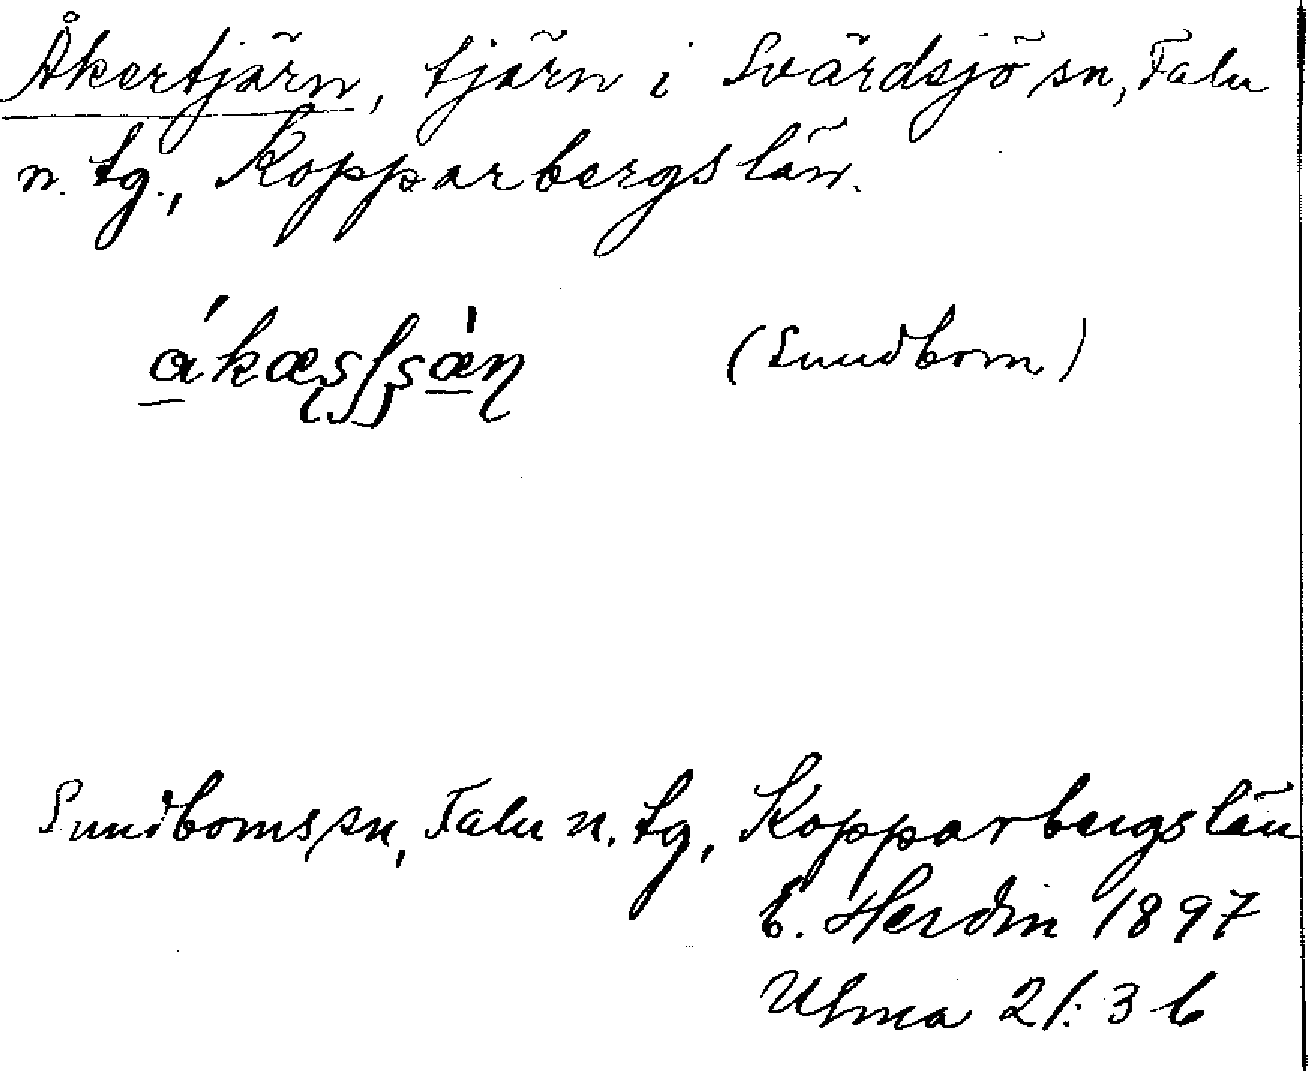 Åkertjärn, tjärn i Svärdsjö sn, Falu
n. tg., Kopparbergs län.
(Sundborn)
Sundborns sn, Falu n. tg, Kopparbergs län
E. Herdin 1897
Ulma 21:3 b